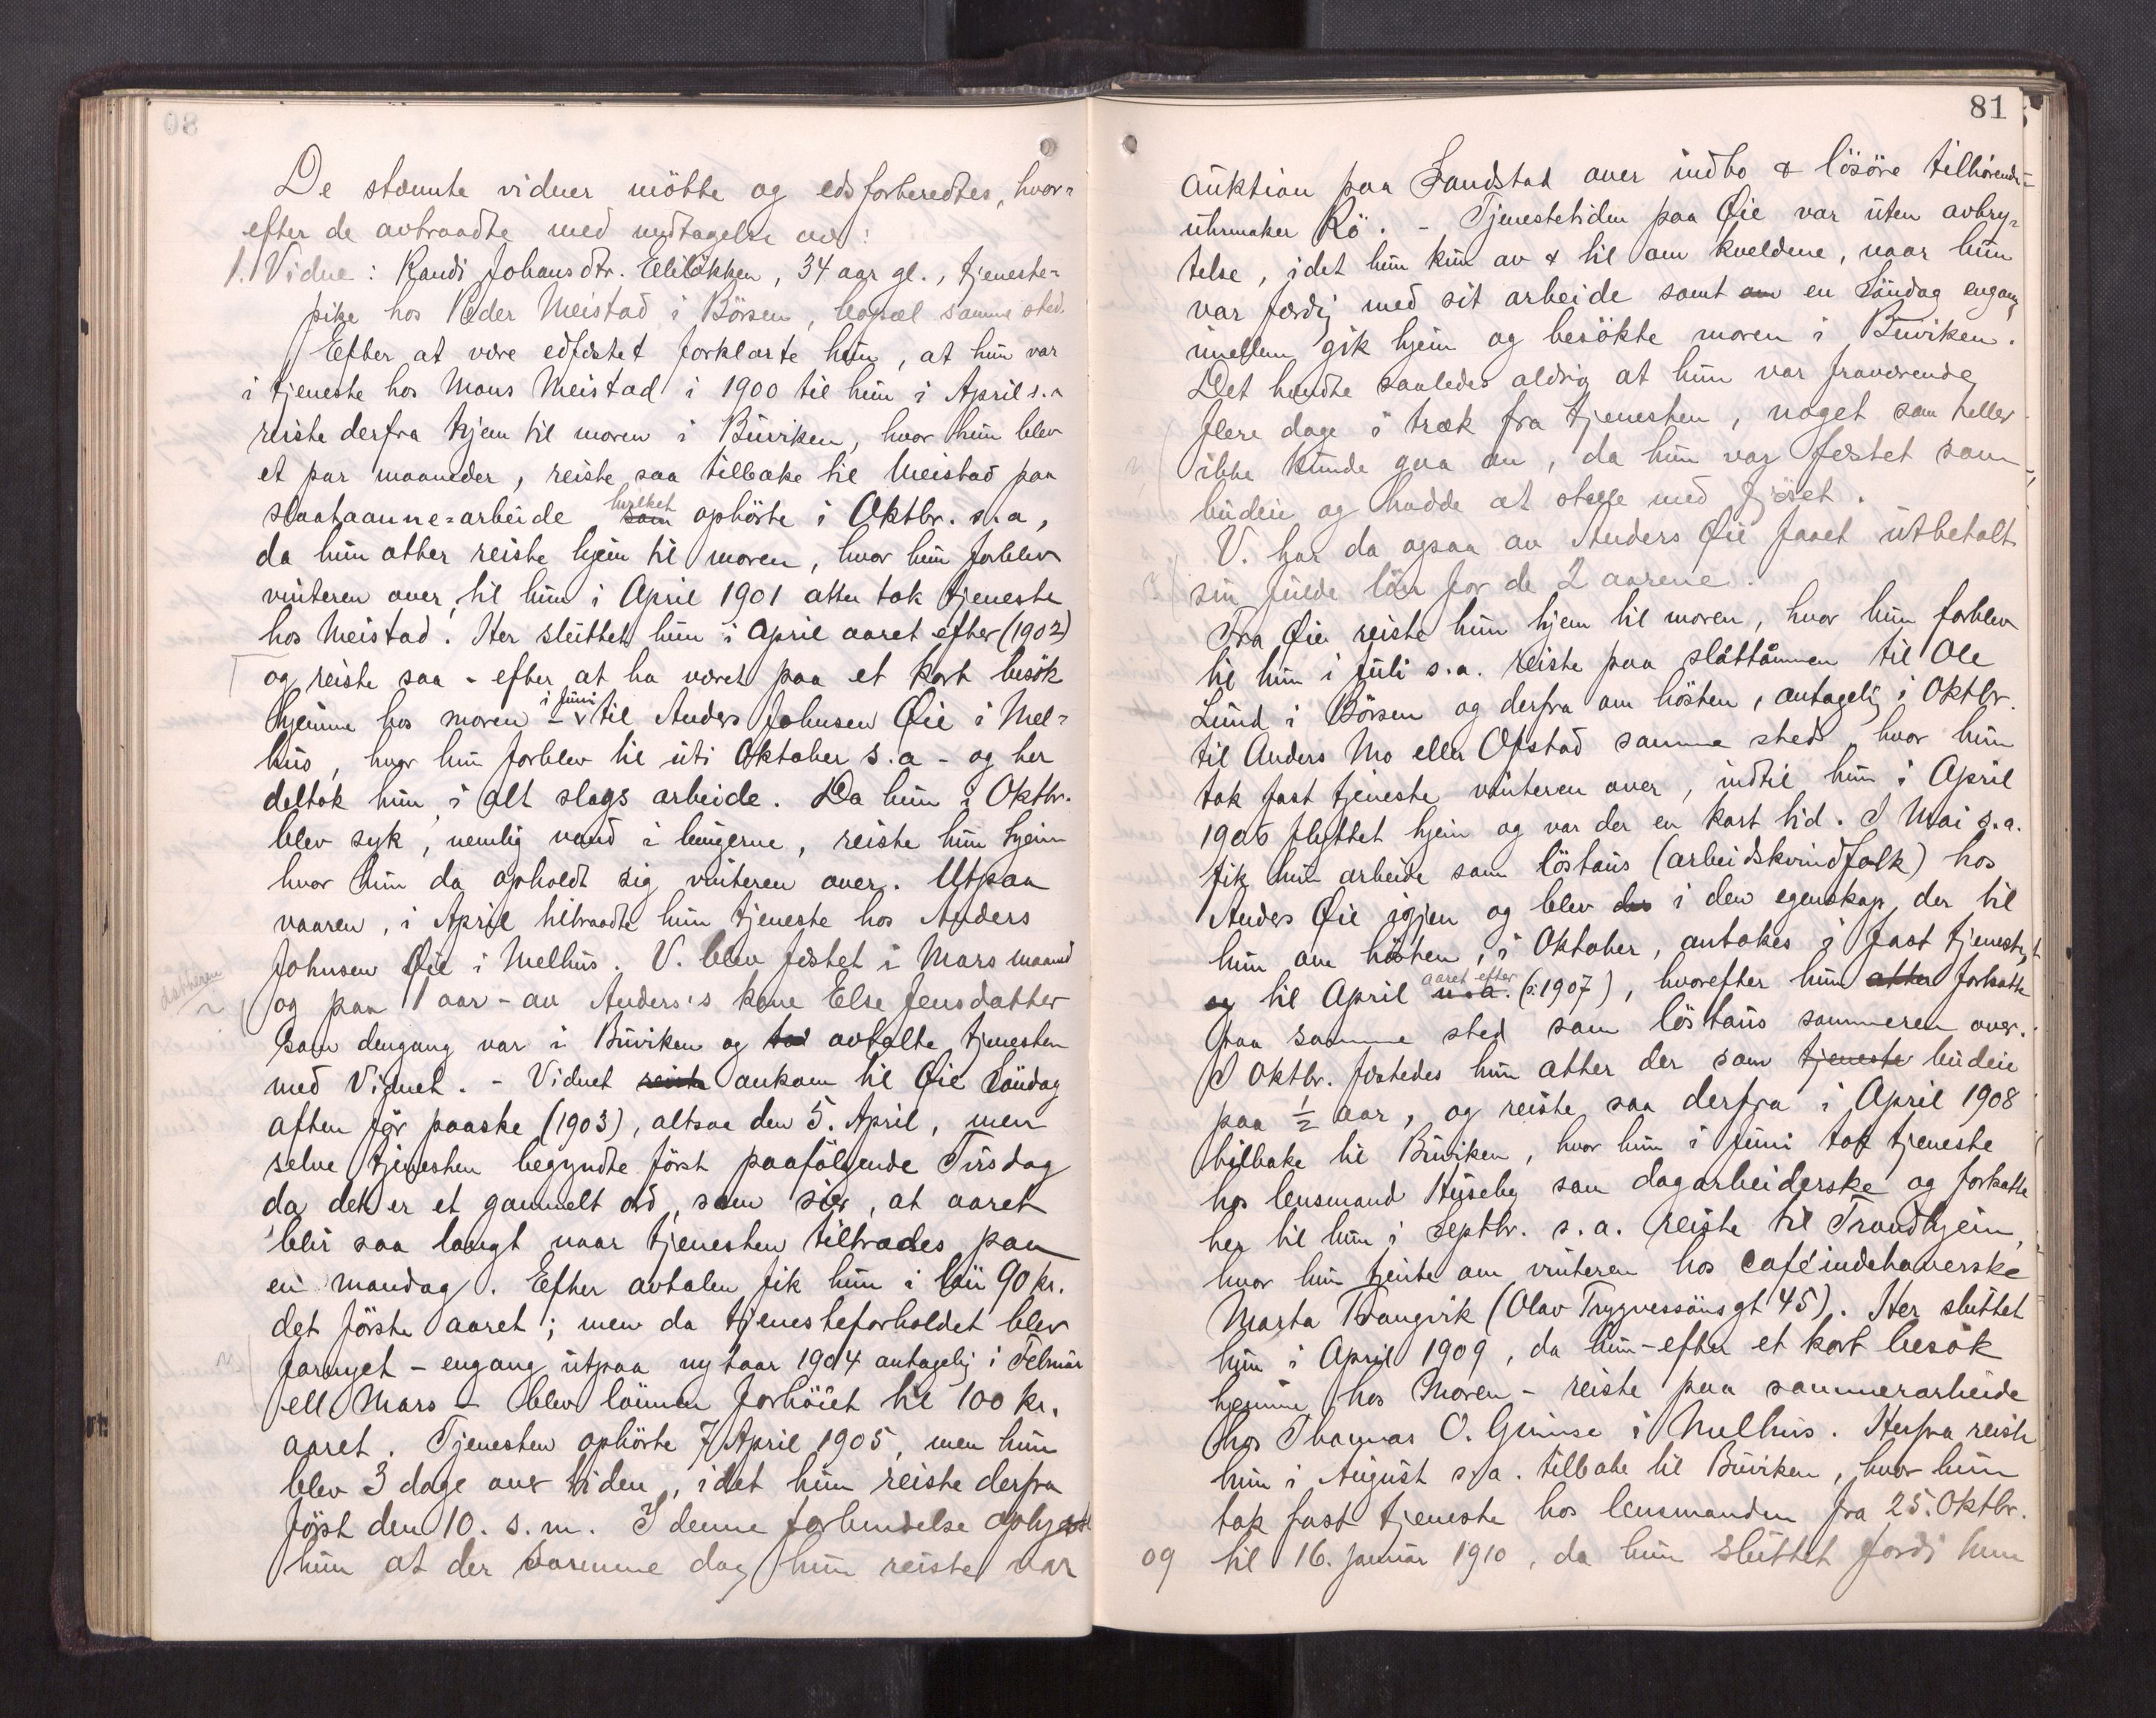 80
De stevnte vidner mötte og edsforberedtes, hvor-
efter de avtraadte med undtagelse av:
1. Vidne: Randi Johansdtr. Elilökken, 34 aar gl., tjeneste-
pike hos Peder Meistad i Börsen, bopæl samme sted.
Efter at være edfæstet forklarte hun, at hun var
i tjeneste hos Mons Meistad i 1900 til hun i April s.a
reiste derfra hjem til moren i Buviken, hvor hun blev
et par maaneder, reiste saa tilbake til Meistad paa
slaataanne-arbeide som hvilket ophörte i Oktbr. s.a,
da hun atter reiste hjem til moren, hvor hun forblev
vinteren over, til hun i April 1901 atter tok tjeneste
hos Meistad. Her sluttet hun i April aaret efter (1902)
og reiste saa - efter at ha været paa et kort besök
hjemme hos moren - i Juni til Anders Johnsen Øie i Mel-
hus, hvor hun forblev til uti Oktober s.a - og her
deltok hun i alt slags arbeide. Da hun i Oktbr.
blev syk, nemlig vand i lungerne, reiste hun hjem
hvor hun da opholdt sig vinteren over. Utpaa
vaaren, i April tiltraadte hun tjeneste hos Anders
Johnsen Øie i Melhus. V. blev fæstet i Mars maaned
datteren
og paa 1 aar - av Anders's kone Else Jensdatter
som dengang var i Buviken og avtalte tjenesten
med Vidnet. - Vidnet reiste ankom til Øie Söndag
aften för paaske (1903), altsaa den 5. April, men
selve tjenesten begyndte först paafölgende Tirsdag
da det er et gammelt ord, som sier, at aaret
blir saa langt naar tjenesten tiltrædes paa
en mandag. Efter avtalen fik hun i lön 90 kr.
det förste aaret; men da tjenesteforholdet blev
fornyet - engang utpaa nytaar 1904 antagelig i Februar
ell. Mars - blev lönnen forhöiet til 100 kr.
aaret. Tjenesten ophörte 7 April 1905, men hun
blev 3 dage over tiden, idet hun reiste derfra
först den 10. s.m. I denne forbindelse oplyste
hun at der samme dag hun reiste var
81
auktion paa Sandstad over indbo & lösöre tilhörende
uhrmaker Rö. - Tjenestetiden paa Øie var uten avbry-
telse, idet hun kun av & til om kveldene, naar hun
var færdig med sit arbeide samt om en Söndag engang
imellem gik hjem og besökte moren i Buviken.
Det hendte saaledes aldrig at hun var fraværende
flere dage i træk fra tjenesten, noget som heller
ikke kunde gaa an, da hun var fæstet som
budeie og hadde at stelle med fjöset.
V. har da ogsaa av Anders Øie faaet utbetalt
sin fulde lön for de 2 aarene.
Fra Øie reiste hun hjem til moren, hvor hun forblev
til hun i Juli s.a. reiste paa slåttånnen til Ole
Lund i Börsen og derfra om hösten, antagelig i Oktbr.
til Anders Mo eller Ofstad samme sted, hvor hun
tok fast tjeneste vinteren over, indtil hun i April
1906 flyttet hjem og var der en kort tid. I Mai s.a.
fik hun arbeide som löstaus (arbeidskvindfolk) hos
Anders Øie igjen og blev der i den egenskap der til
hun om hösten, i Oktober, antokes i fast tjeneste
og til April n. a. aaret efter (ɔ: 1907), hvorefter hun atter forlatte
paa samme sted som löstaus sommeren over.
I Oktbr. fæstedes hun atter der som tjeneste budeie
paa ½ aar, og reiste saa derfra i April 1908
tilbake til Buviken, hvor hun i Juni tok tjeneste
hos lensmand Huseby som dagarbeiderske og fortsatte
her til hun i Septbr. s.a. reiste til Trondhjem,
hvor hun tjente om vinteren hos caféindehaverske
Marta Trangvik (Olav Trygvessönsgt 45). Her sluttet
hun i April 1909, da hun - efter et kort besök
hjemme hos moren - reiste paa sommerarbeide
hos Thomas O. Gimse i Melhus. Herfra reiste
hun i August s.a. tilbake til Buviken, hvor hun
tok fast tjeneste hos lensmanden fra 25. Oktbr.
09 til 16. januar 1910, da hun sluttet fordi hun